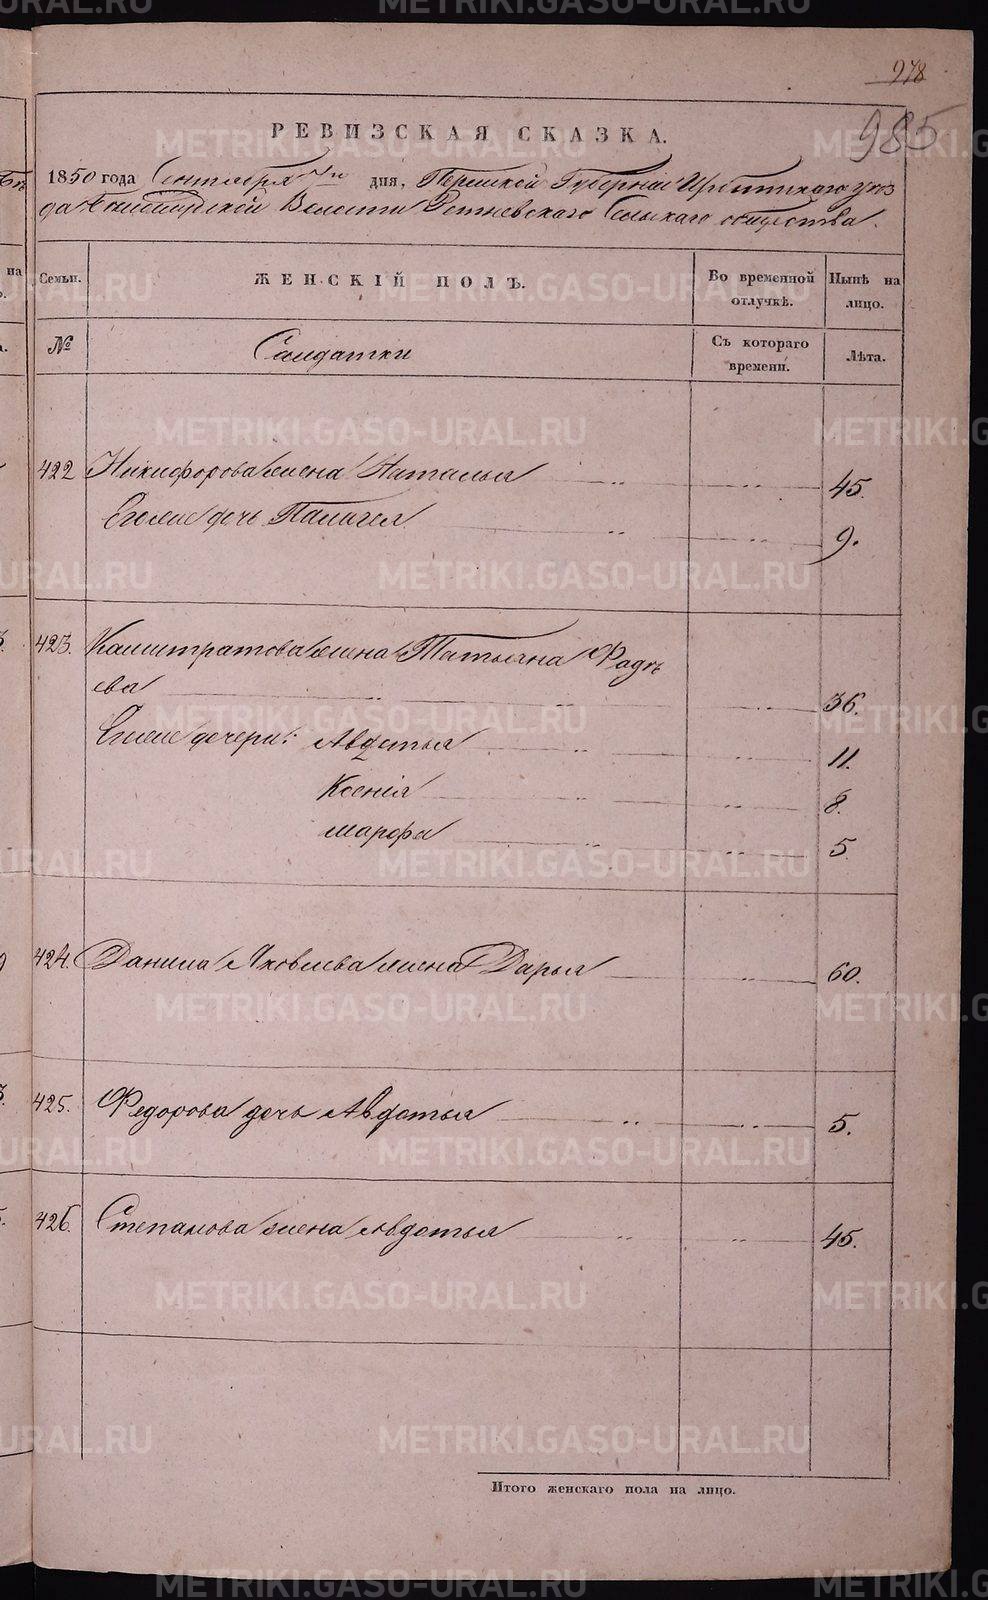 978
985
РЕВИЗСКАЯ СКАЗКА.
1850 года Сентября 7го дня, Пермской Губерніи Ирбитскаго уез
да Волости Ретневскаго Сельскаго общества.
Семьи.
ЖЕНСКІЙ ПОЛЪ.
Во временной отлучкѣ.
Нынѣ на лицо.
№
Солдатки
Съ котораго времени.
Лѣта.
422 Никифорова жена Наталья 45.
Ихъ дочь Палагея 9.
423. Калистратова жена Татьяна Фадѣ
ева 36.
Ихъ дочери: Авдотья 11.
Ксенія 8.
Марфа 5.
424. Данила Яковлева жена Дарья 60.
425. Федорова дочь Авдотья 5.
426. Степанова жена Авдотья 45.
Итого женскаго пола на лицо.
METRIKI.GASO-URAL.RU